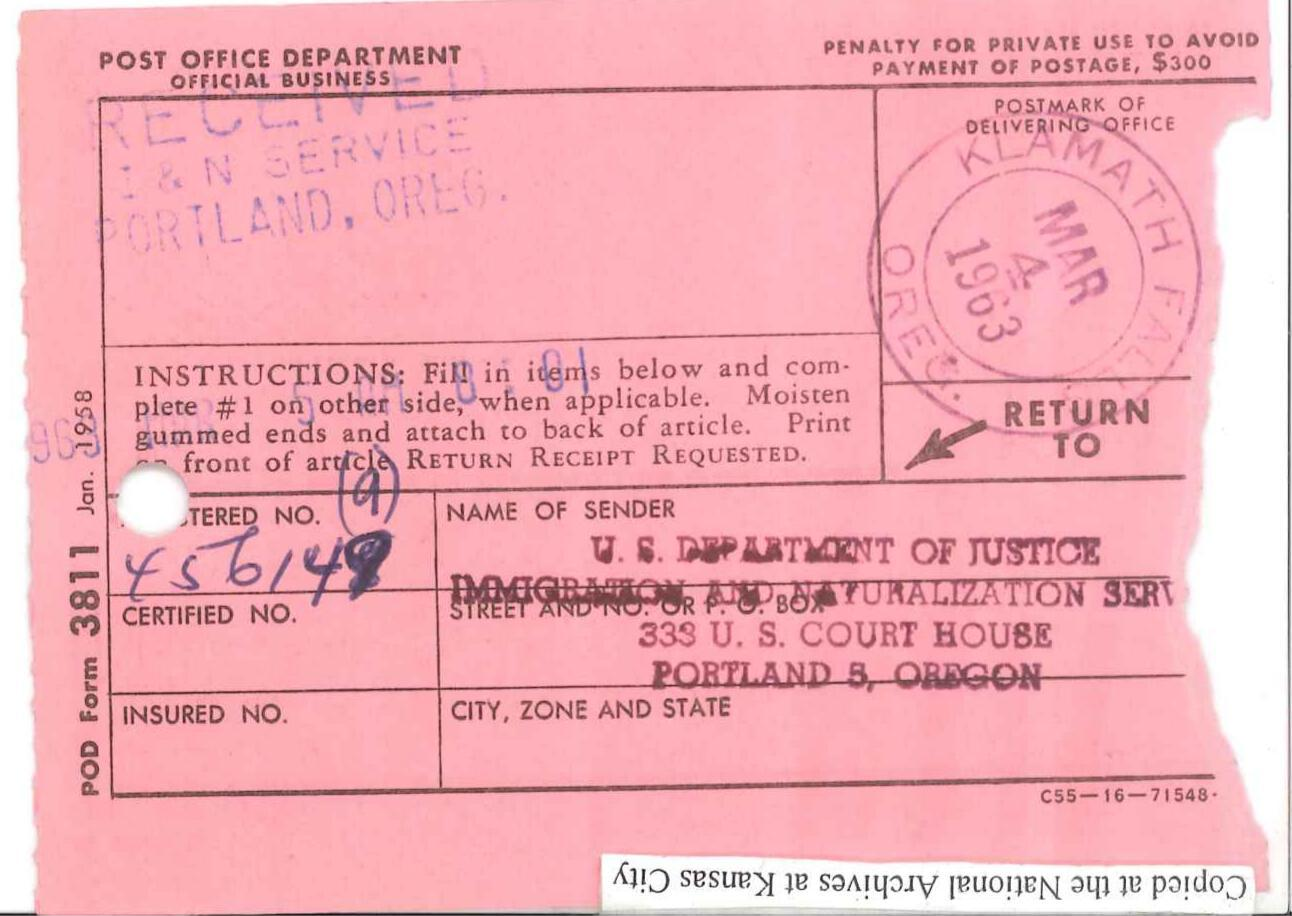 POST OFFICE DEPARTMENT
OFFICIAL BUSINESS
PENALTY FOR PRIVATE USE TO AVOID
PAYMENT OF POSTAGE, $300
RECEIVED
I & N SERVICE
PORTLAND, OREG.
POSTMARK OF
DELIVERING OFFICE
KLAMATH FALLS
OREG.
MAR
4
1963
INSTRUCTIONS: Fill in items below and com-
plete #1 on other side, when applicable. Moisten
gummed ends and attach to back of article. Print
on front of article RETURN RECEIPT REQUESTED.
RETURN
TO
POD Form 3811 Jan. 1958
(9)
STERED NO.
456149
CERTIFIED NO.
INSURED NO.
NAME OF SENDER
U. S. DEPARTMENT OF JUSTICE
IMMIGRATION AND NATURALIZATION SERV
STREET AND NO. OR P. O. BOX
333 U. S. COURT HOUSE
PORTLAND 5, OREGON
CITY, ZONE AND STATE
C55—16—71548
Copied at the National Archives at Kansas City